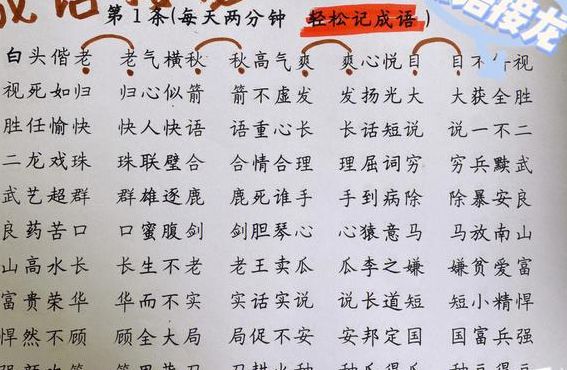 接龙
第1条(每天两分钟 轻松记成语)
白头偕老 老气横秋 秋高气爽 爽心悦目 目不视
视死如归 归心似箭 箭不虚发 发扬光大 大获全胜
胜任愉快 快人快语 语重心长 长话短说 说一不二
二龙戏珠 珠联璧合 合情合理 理屈词穷 穷兵黩武
武艺超群 群雄逐鹿 鹿死谁手 手到病除 除暴安良
良药苦口 口蜜腹剑 剑胆琴心 心猿意马 马放南山
山高水长 长生不老 老王卖瓜 瓜李之嫌 嫌贫爱富
富贵荣华 华而不实 实话实说 说长道短 短小精悍
悍然不顾 顾全大局 局促不安 安邦定国 国富兵强